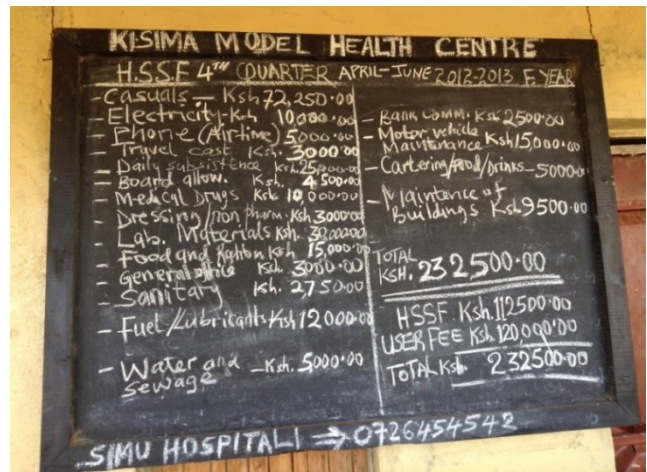 KISIMA MODEL HEALTH CENTRE
H.S.S.F 4TH QUARTER APRIL-JUNE 2012-2013 F. YEAR
- Casuals — Ksh 72,250.00
- Electricity - Ksh 10,000.00
- Phone (Airtime) 5,000.00
- Travel cost Ksh. 3000.00
- Daily subsistence Ksh. 25,000.00
- Board allow. Ksh. 4,500.00
- Medical Drugs Ksh 10,000.00
- Dressing/non pharm. Ksh 3000.00
- Lab. Materials Ksh. 30,000.00
- Food and Ration Ksh 15,000.00
- General office Ksh. 3000.00
- Sanitary Ksh. 2,750.00
- Fuel/Lubricants Ksh 12000.00
- Water and - Ksh. 5000.00
sewage
- BANK COMM. Ksh 2500.00
- Motor vehicle
Maintenance Ksh 15,000.00
- Cartering/food/Drinks - 5000.00
- Maintence of
Buildings Ksh 9500.00
TOTAL
KSH. 232,500.00
HSSF Ksh. 112500.00
USER FEE Ksh. 120,000.00
TOTAL Ksh. 232500.00
SIMU HOSPITALI ⇒ 0726454542